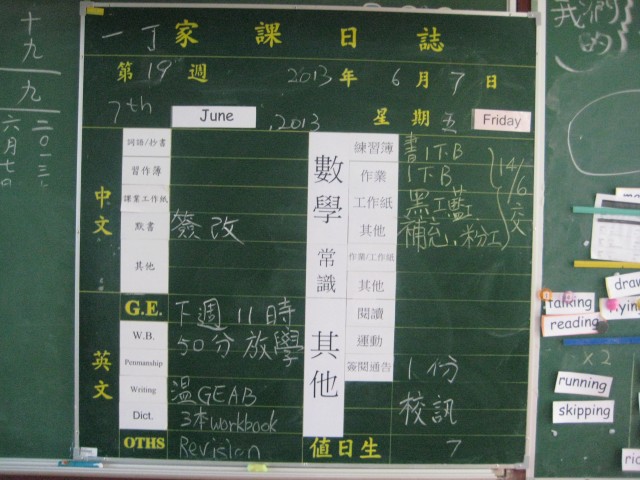 十九
九
二〇一三
六月七日
一丁家課日誌
第19週 2013年6月7日
7th June ,2013 星期五 Friday
中文
詞語/抄書
習作簿
課業工作紙
默書 簽改
其他
英文
G.E. 下週11時
W.B. 50分放學
Penmanship
Writing 溫GEAB
Dict. 3本workbook
OTHS Revision
數學
練習簿 書1下B
作業 1下B
工作紙
其他 補充,粉工
14/6交
常識
作業/工作紙
其他
其他
閱讀
運動
簽閱通告 1份
校訊
值日生 7
我們
的
talking
reading
x2
running
skipping